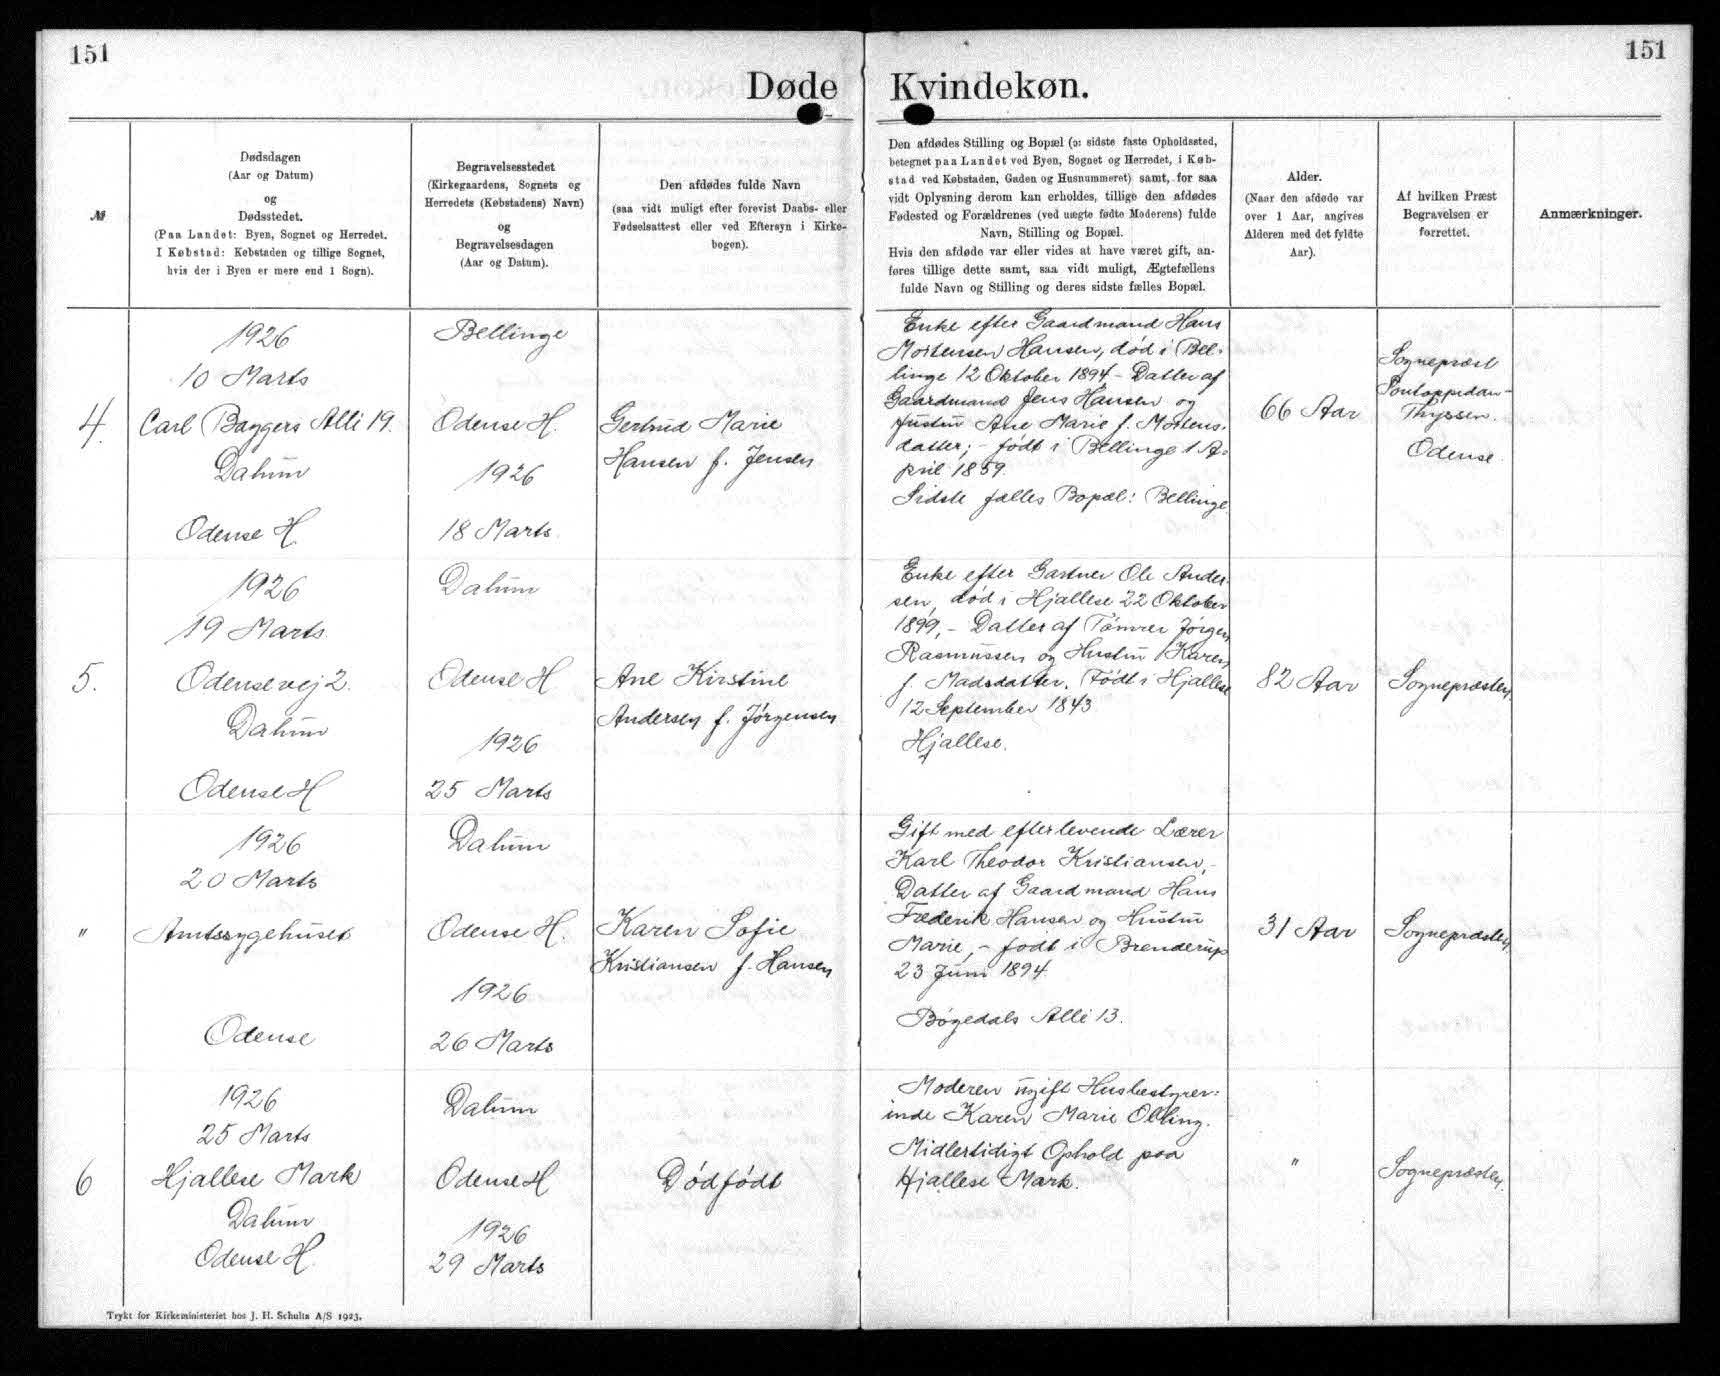 151
151
Døde Kvindekøn.
№
Dødsdagen
(Aar og Datum)
og
Dødsstedet.
(Paa Landet: Byen, Sognet og Herredet.
I Købstad: Købstaden og tillige Sognet,
hvis der i Byen er mere end 1 Sogn).
Begravelsesstedet
(Kirkegaardens, Sognets og
Herredets (Købstadens) Navn)
og
Begravelsesdagen
(Aar og Datum).
Den afdødes fulde Navn
(saa vidt muligt efter forevist Daabs- eller
Fødselsattest eller ved Eftersyn i Kirke-
bogen).
Den afdødes Stilling og Bopæl (ɔ: sidste faste Opholdssted,
betegnet paa Landet ved Byen, Sognet og Herredet, i Køb-
stad ved Købstaden, Gaden og Husnummeret) samt, for saa
vidt Oplysning derom kan erholdes, tillige den afdødes
Fødested og Forældrenes (ved uægte fødte Moderens) fulde
Navn, Stilling og Bopæl.
Hvis den afdøde var eller vides at have været gift, an-
føres tillige dette samt, saa vidt muligt, Ægtefællens
fulde Navn og Stilling og deres sidste fælles Bopæl.
Alder.
(Naar den afdøde var
over 1 Aar, angives
Alderen med det fyldte
Aar).
Af hvilken Præst
Begravelsen er
forrettet.
Anmærkninger.
4.
1926
10 Marts
Carl Baggers Alli 19.
Dalum
Odense H.
Bellinge
Odense H.
1926
18 Marts
Gertrud Marie
Hansen f. Jensen
Enke efter Gaardmand Hans
Mortensen Hansen, død i Bel-
linge 12 Oktober 1894 - Datter af
Gaardmand Jens Hansen og
Hustru Ane Marie f. Mortens-
datter; - født i Bellinge 1 A-
pril 1859.
Sidste fælles Bopæl: Bellinge
66 Aar
Sognepræst
Pontoppidan-
Thyssen.
Odense.
5.
1926
19 Marts
Odensevej 2.
Dalum
Odense H
Dalum
Odense H
1926
25 Marts
Ane Kirstine
Andersen f. Jørgensen
Enke efter Gartner Ole Ander-
sen, død i Hjallese 22 Oktober
1899, - Datter af Tømrer Jørgen
Rasmussen og Hustru Karen
f. Madsdatter. Født i Hjallese
12 September 1843
Hjallese.
82 Aar
Sognepræsten
"
1926
20 Marts
Amtssygehuset
Odense
Dalum
Odense H.
1926
26 Marts
Karen Sofie
Kristiansen f. Hansen
Gift med efterlevende Lærer
Karl Theodor Kristiansen, -
Datter af Gaardmand Hans
Frederik Hansen og Hustru
Marie, - født i Brenderup
23 Juni 1894.
Bøgedals Alli 13.
31 Aar
Sognepræsten
6
1926
25 Marts
Hjallese Mark
Dalum
Odense H.
Dalum
Odense H
1926
29 Marts
Dødfødt
Moderen ugift Husbestyrer-
inde Karen Marie Olling.
Midlertidigt Ophold paa
Hjallese Mark.
"
Sognepræsten.
Trykt for Kirkeministeriet hos J. H. Schultz A/S 1923.